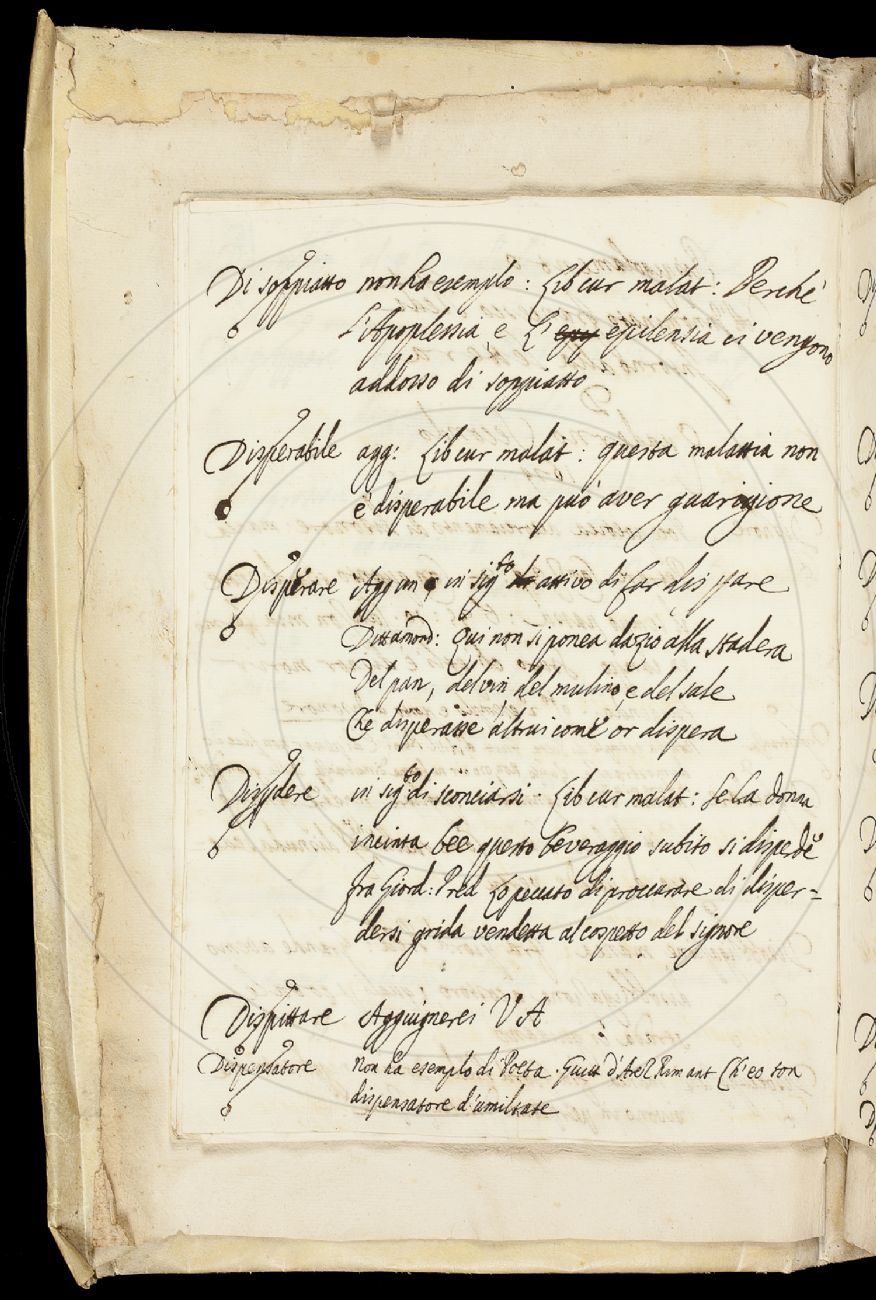 Di soppiatto non ha esemplo: Lib cur malat: Perché
L'Apoplessia, e L' epilensia ci vengono
addosso di soppiatto
Disperabile agg: Lib cur malat: questa malattia non
é disperabile ma può aver guarigione
Disperare Aggiun in sig.to attivo di far disperare
Dittamond: Qui non si ponea dazio alla stadera
Del pan, del vin del mulino, e del sale
Che disperasse altrui come or dispera
Disperdere in sig.to di sconciarsi. Lib cur malat: Se La donna
incinta bee questo beveraggio subito si disperde
fra Giord: Pred Lo peccato di proccurare di disper=
dersi grida vendetta al cospetto del signore
Dispittare Aggiugnerei V A
Dispensatore Non ha esemplo di Poeta. Guitt d'Arez Rim ant Ch'eo son
dispensatore d'umiltate